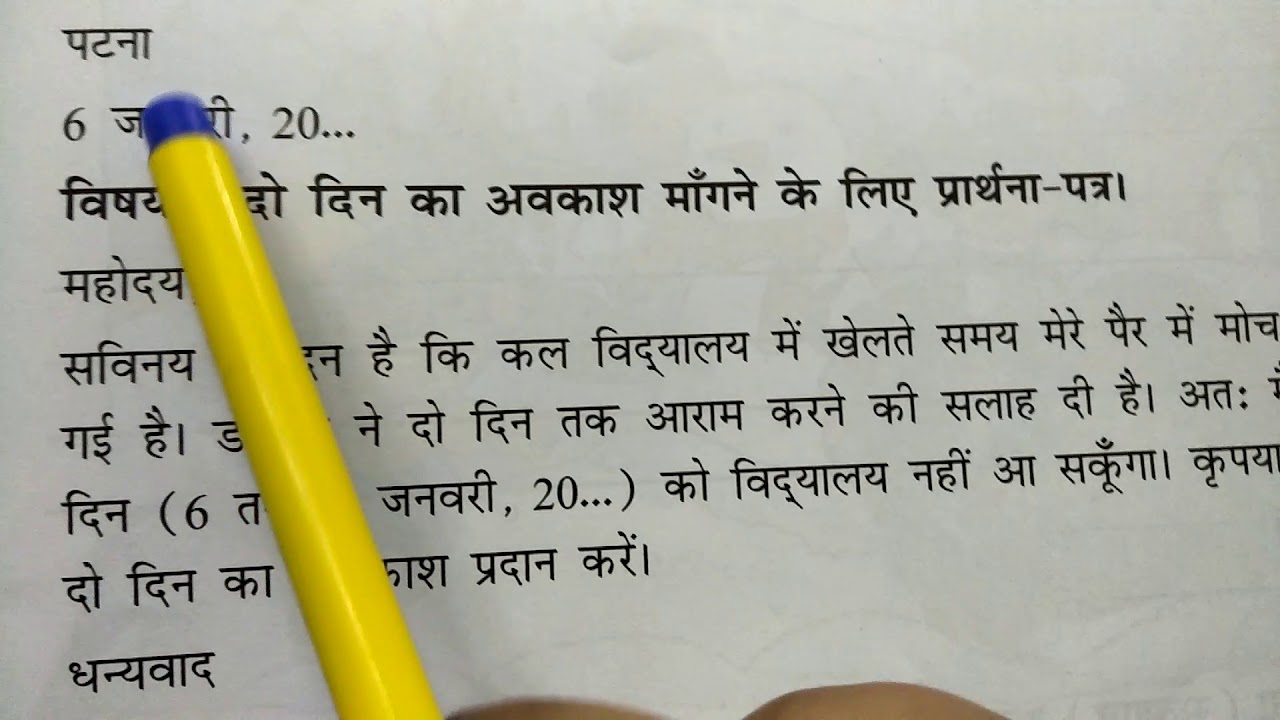 पटना
6 20...
दो दिन का अवकाश माँगने के लिए प्रार्थना-पत्र।
महोदय
सविनय है कि कल विद्यालय में खेलते समय मेरे पैर में मोच
गई है। ने दो दिन तक आराम करने की सलाह दी है। अतः
दिन (6 जनवरी, 20...) को विद्यालय नहीं आ सकूँगा। कृपया
दो दिन का प्रदान करें।
धन्यवाद